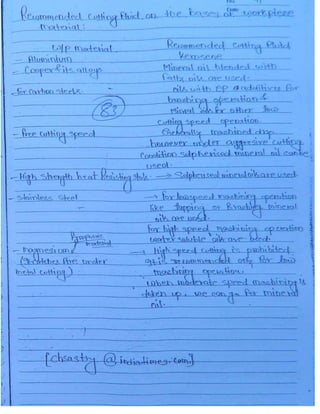 Recommended cutting fluid, on the bases of workpiece
material:
W/p material
Recommended cutting fluid
- Aluminium
kerosene
- Copper & its alloys
Mineral oil blended with
fatty oils are used.
- for carbon steels
oils with EP additives for
broaching operation &
83
mineral oil for other low
cutting speed operation
- free cutting speed
Generally machined dry
however under aggresive cutting
condition sulpherised mineral oil can be
used.
- High strength heat resisting stls. → Sulpherised mineral oils are used.
- Stainless steel
→ for low speed machining operation
like tapping or broaching mineral
oils are used.
for high speed machining operation
water soluble oils are used.
- Magnesium
→ High speed cutting is prohibited
(It catches fire under
It is recommended only for low
metal cutting)
machining operation.
when moderate speed machining is
taken up, we can go for mineral
oil.
[chsastry @ indiatimes.com]